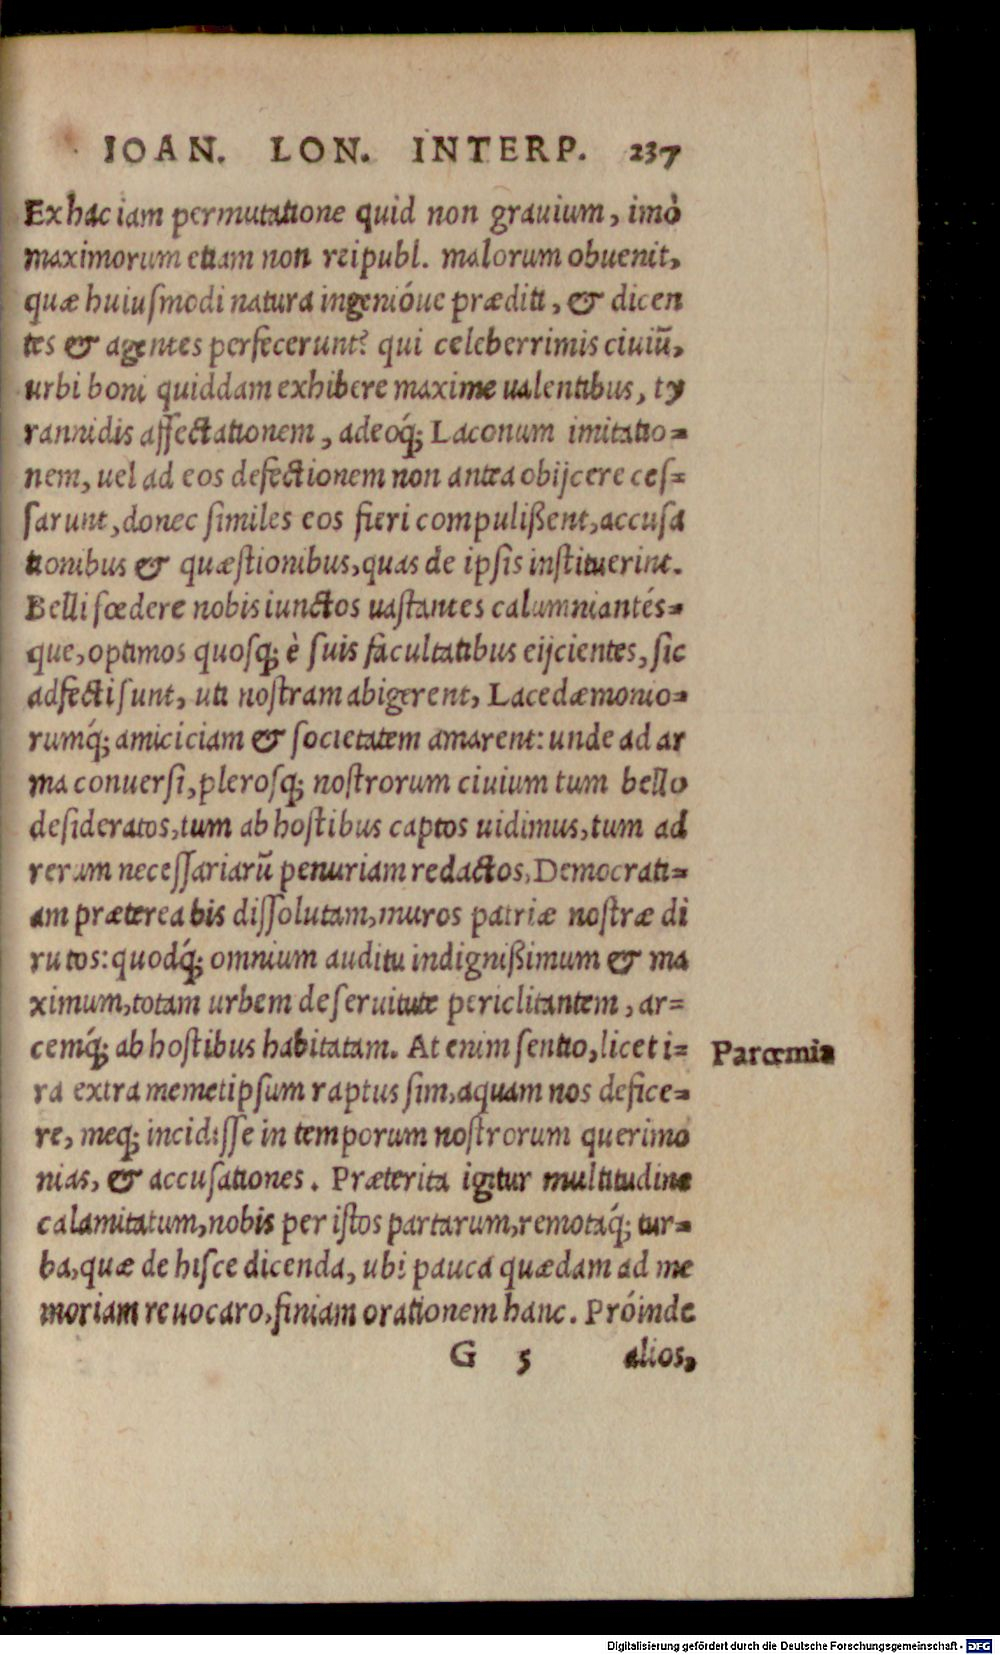 IOAN. LON. INTERP. 237
Ex hac iam permutatione quid non grauium, imò
maximorum etiam non reipubl. malorum obuenit,
quæ huiuſmodi natura ingenióue præditi, & dicen
tes & agentes perfecerunt? qui celeberrimis ciuiũ,
urbi boni quiddam exhibere maxime ualentibus, ty
rannidis affectationem, adeoq́; Laconum imitatio=
nem, uel ad eos defectionem non antea obijcere ceſ=
ſarunt, donec ſimiles eos fieri compulißent, accuſa
tionibus & quæſtionibus, quas de ipſis inſtituerint.
Belli fœdere nobis iunctos uaſtantes calumniantés=
que, optimos quoſq; è ſuis facultatibus eijcientes, ſic
adfecti ſunt, uti noſtram abigerent, Lacedæmonio=
rumq́; amiciciam & ſocietatem amarent: unde ad ar
ma conuerſi, pleroſq; noſtrorum ciuium tum bello
deſideratos, tum ab hoſtibus captos uidimus, tum ad
rerum neceſſariarũ penuriam redactos, Democrati=
am præterea bis diſſolutam, muros patriæ noſtræ di
rutos: quodq́; omnium auditu indignißimum & ma
ximum, totam urbem de ſeruitute periclitantem, ar=
cemq́; ab hoſtibus habitatam. At enim ſentio, licet i=
ra extra memetipſum raptus ſim, aquam nos defice=
re, meq; incidiſſe in temporum noſtrorum querimo
nias, & accuſationes. Præterita igitur multitudine
calamitatum, nobis per iſtos partarum, remotaq́; tur=
ba, quæ de hiſce dicenda, ubi pauca quædam ad me
moriam reuocaro, finiam orationem hanc. Próinde
G 5 alios,
Parœmia
Digitalisierung gefördert durch die Deutsche Forschungsgemeinschaft - DFG